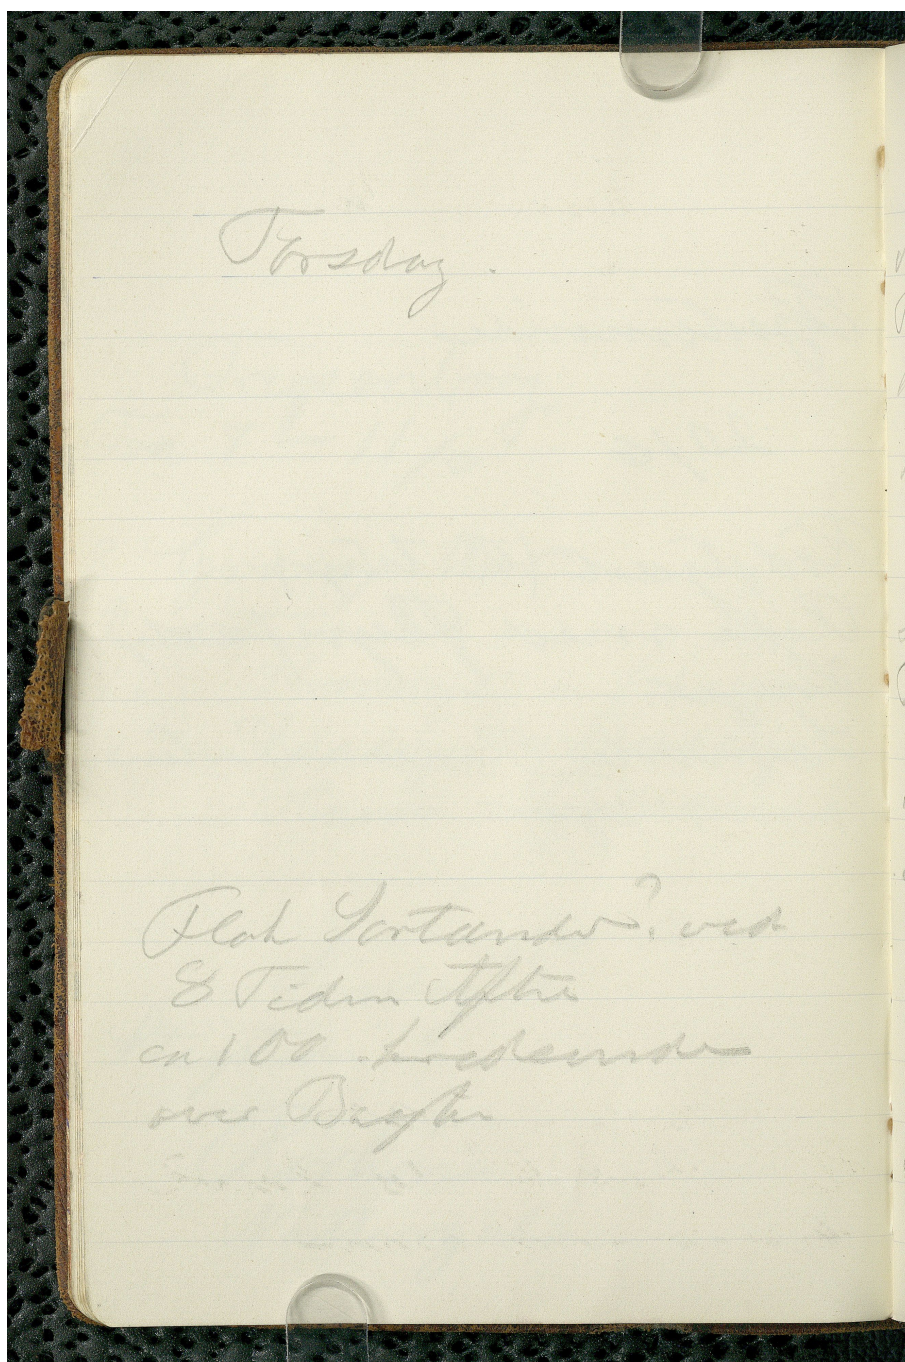 Torsdag.
Flok Sortænder? ved
8 Tiden Aften
ca 100
over Bugten